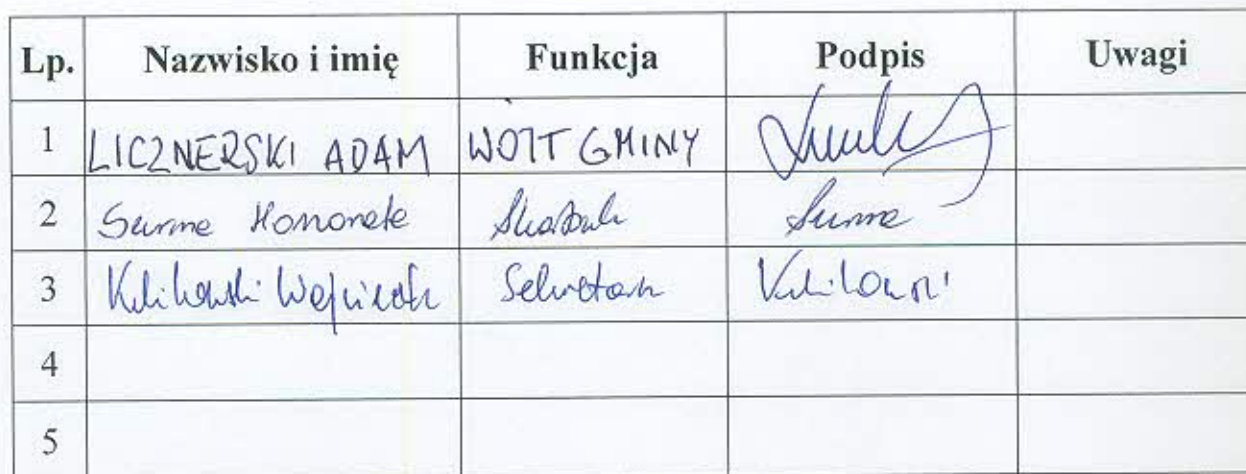 Lp. Nazwisko i imię Funkcja Podpis Uwagi
1 LICZNERSKI ADAM WÓJT GMINY
2 Surma Honorata Skarbnik Surma
3 Kulikowski Wojciech Sekretarz Kulikowski
4
5